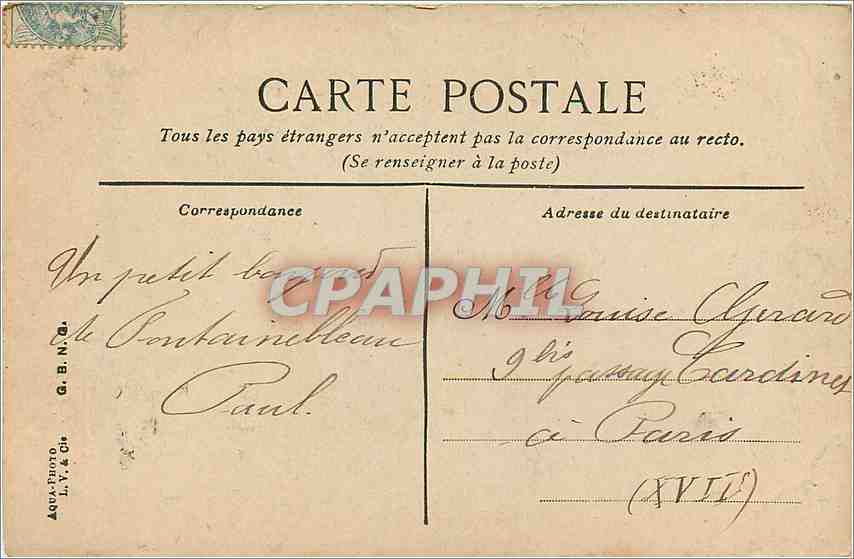 CARTE POSTALE
Tous les pays étrangers n'acceptent pas la correspondance au recto.
(Se renseigner à la poste)
Correspondance
Un petit
de Fontainebleau
Paul.
Adresse du destinataire
Mlle Louise Gerard
9 bis passage Cardinet
à Paris
(XVIIe)
CPAPHIL
AQUA-PHOTO
L. V. & Cie
G. B. N. G.